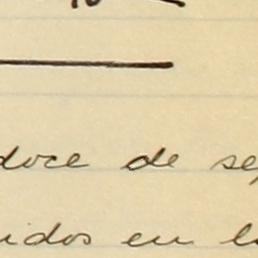 doce de se
idos en l